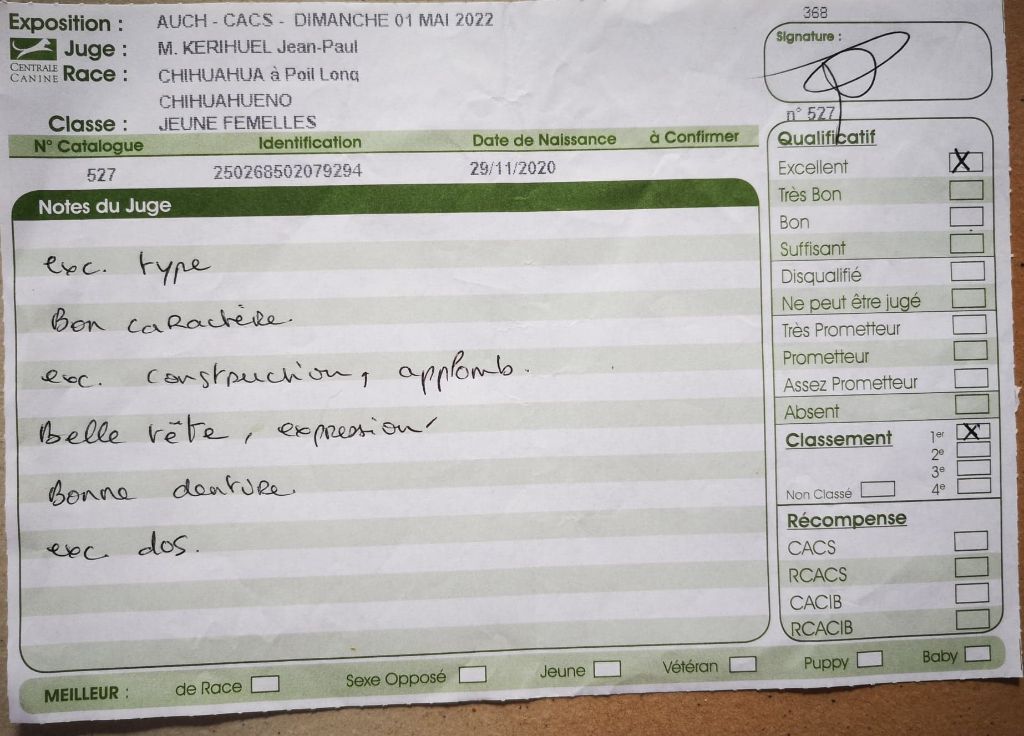 Exposition : AUCH - CACS - DIMANCHE 01 MAI 2022
Juge : M. KERIHUEL Jean-Paul
CENTRALE CANINE
Race : CHIHUAHUA à Poil Long
CHIHUAHUENO
Classe : JEUNE FEMELLES
368
Signature :
n° 527
N° Catalogue Identification Date de Naissance à Confirmer
527 250268502079294 29/11/2020
Notes du Juge
exc. type
Bon caractère.
exc. construction, applomb.
Belle tête, expression
Bonne denture.
exc. dos.
Qualificatif
Excellent X
Très Bon
Bon
Suffisant
Disqualifié
Ne peut être jugé
Très Prometteur
Prometteur
Assez Prometteur
Absent
Classement 1er X
2e
3e
Non Classé 4e
Récompense
CACS
RCACS
CACIB
RCACIB
MEILLEUR : de Race Sexe Opposé Jeune Vétéran Puppy Baby